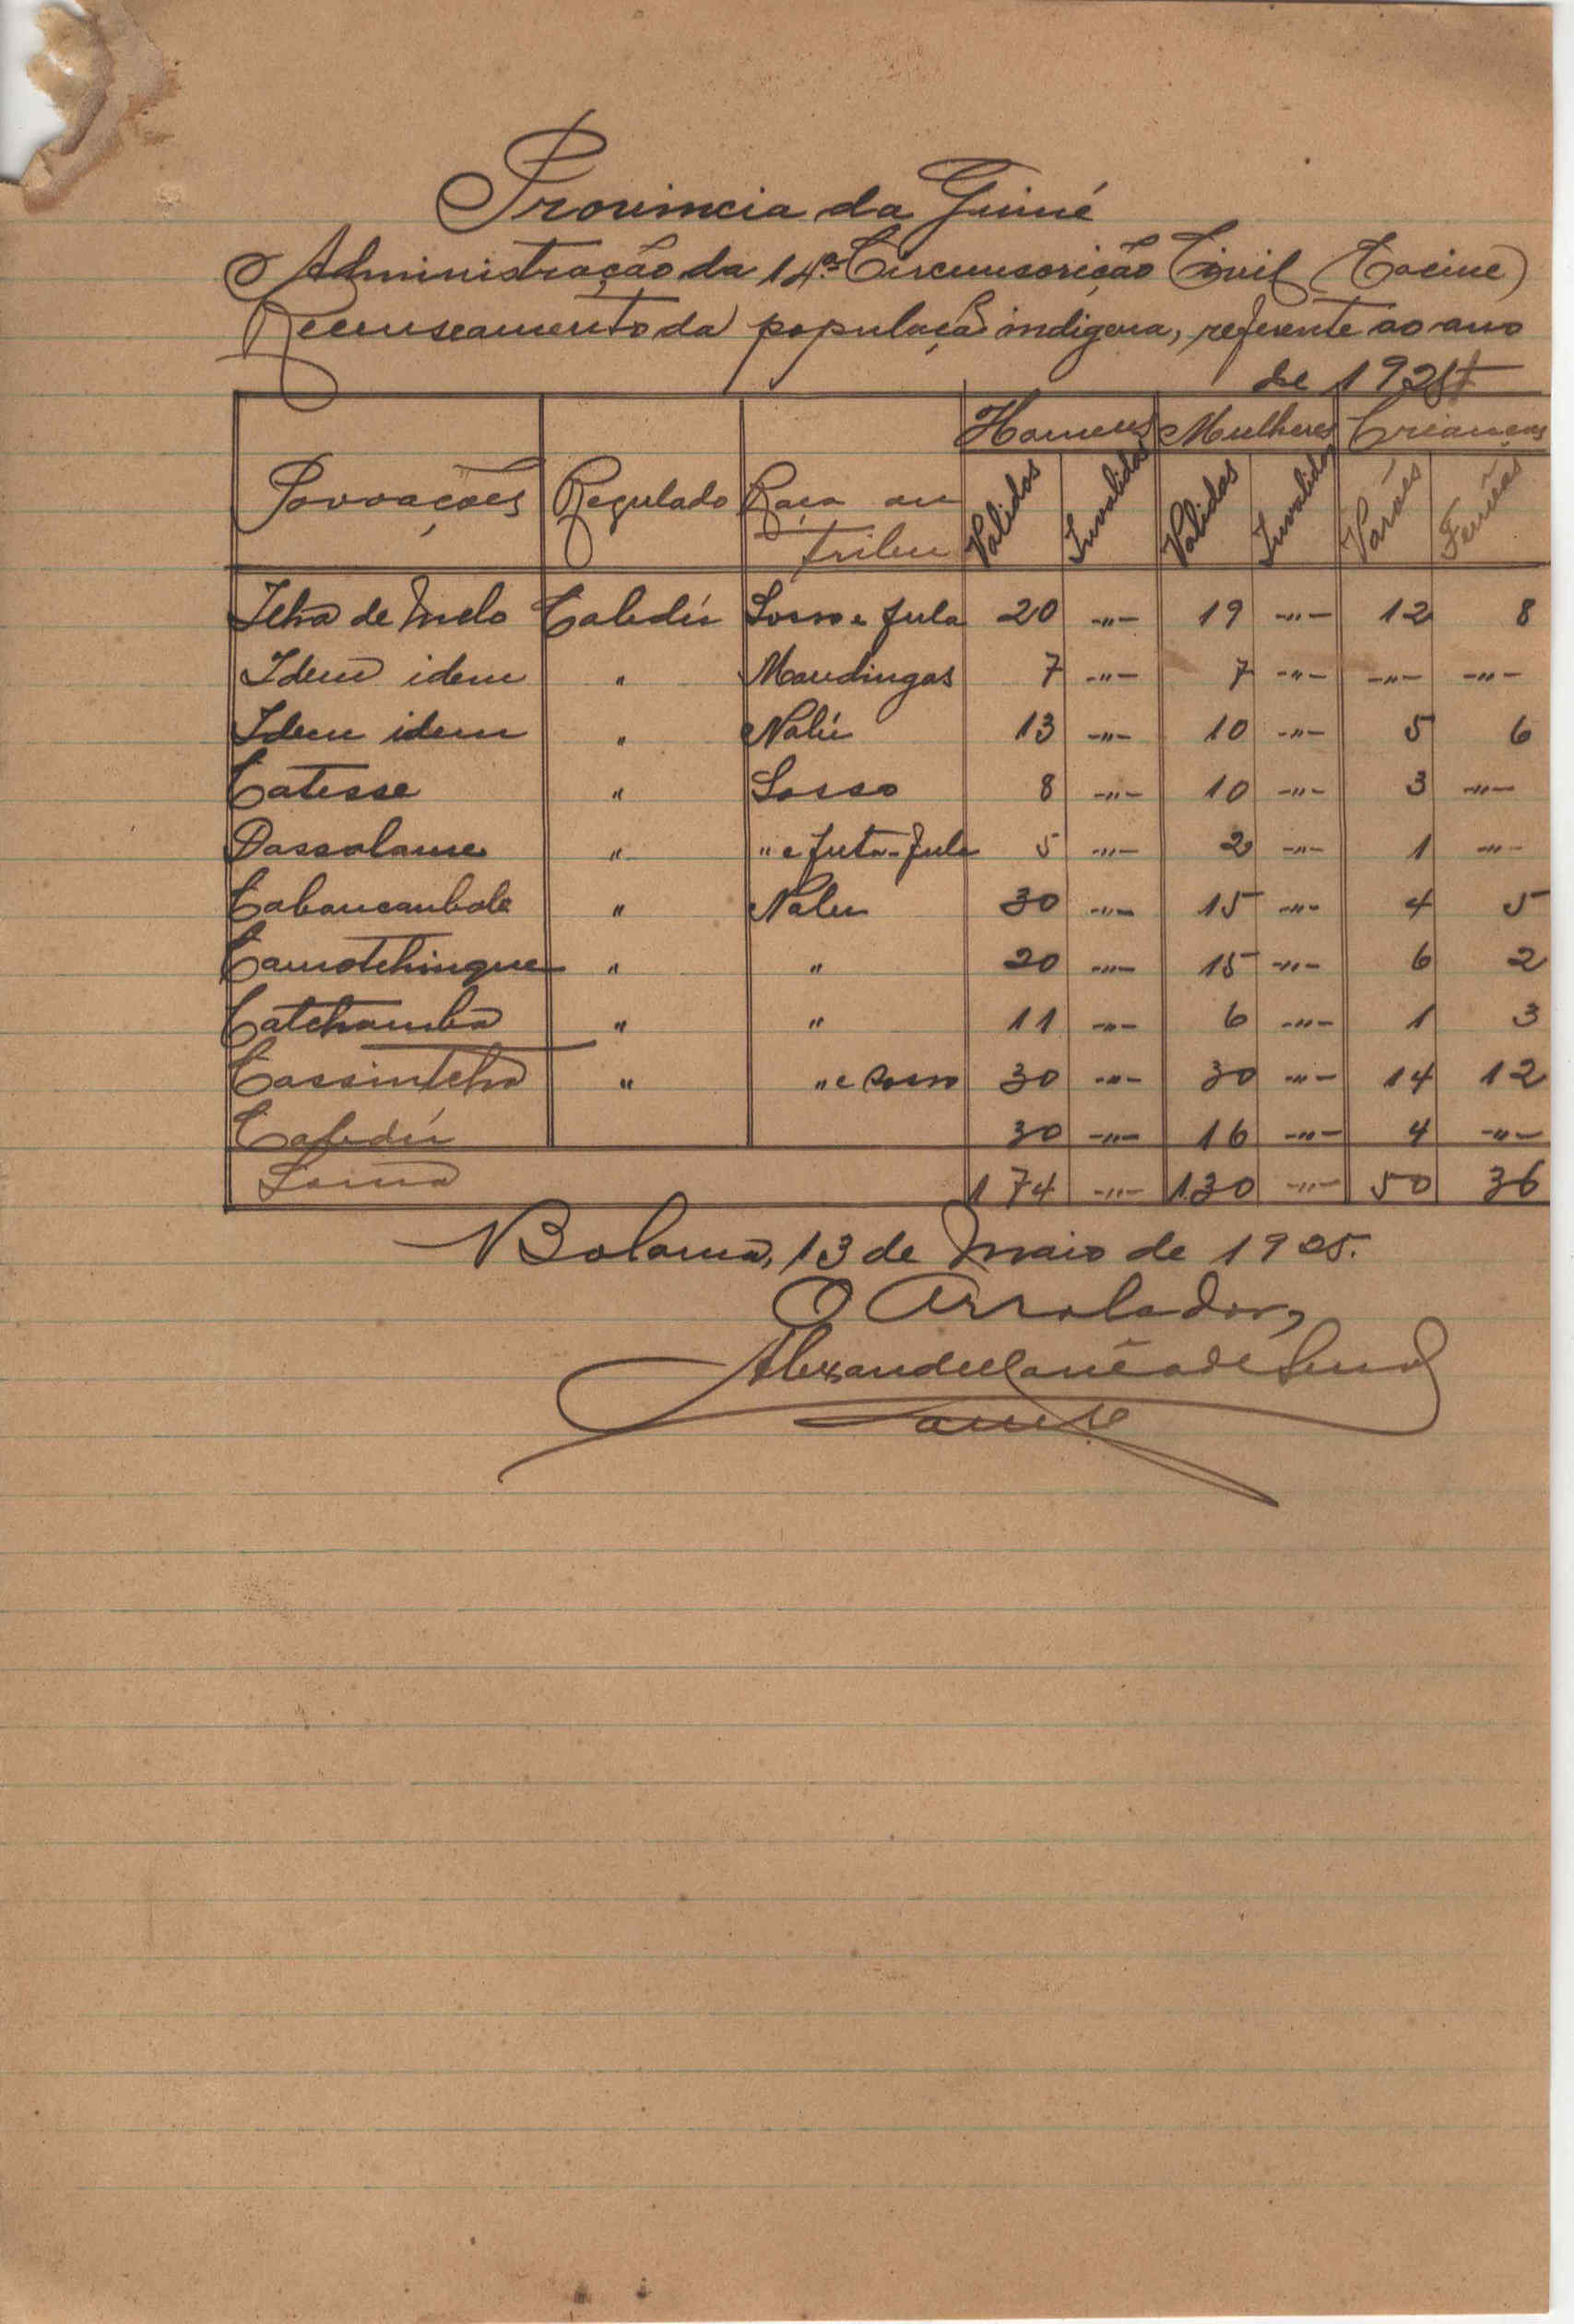 Provincia da Guiné
Administração da 14ª Circunscrição Civil (Cacine)
Recenseamento da população indigena, referente ao ano
de 1925
Homens Mulheres Crianças
Povoações Regulado Raça ou tribu Validos Invalidos Validas Invalidas Varões Femêas
Ilha de Melo Cabedú Sosso e fula 20 -"- 19 -"- 12 8
Idem idem " Mandingas 7 -"- 7 -"- -"- -"-
Idem idem " Nalú 13 -"- 10 -"- 5 6
Catesse " Sosso 8 -"- 10 -"- 3 -"-
Dassalame " " e futa-fula 5 -"- 2 -"- 1 -"-
Cabancanbole " Nalu 30 -"- 15 -"- 4 5
Camotchingue " " 20 -"- 15 -"- 6 2
Catchamba " " 11 -"- 6 -"- 1 3
Cassintcha " " e Sosso 30 -"- 30 -"- 14 12
Cabedú 30 -"- 16 -"- 4 -"-
Soma 174 -"- 130 -"- 50 36
Bolama, 13 de Maio de 1925.
O Arrolador,
Alexandre de